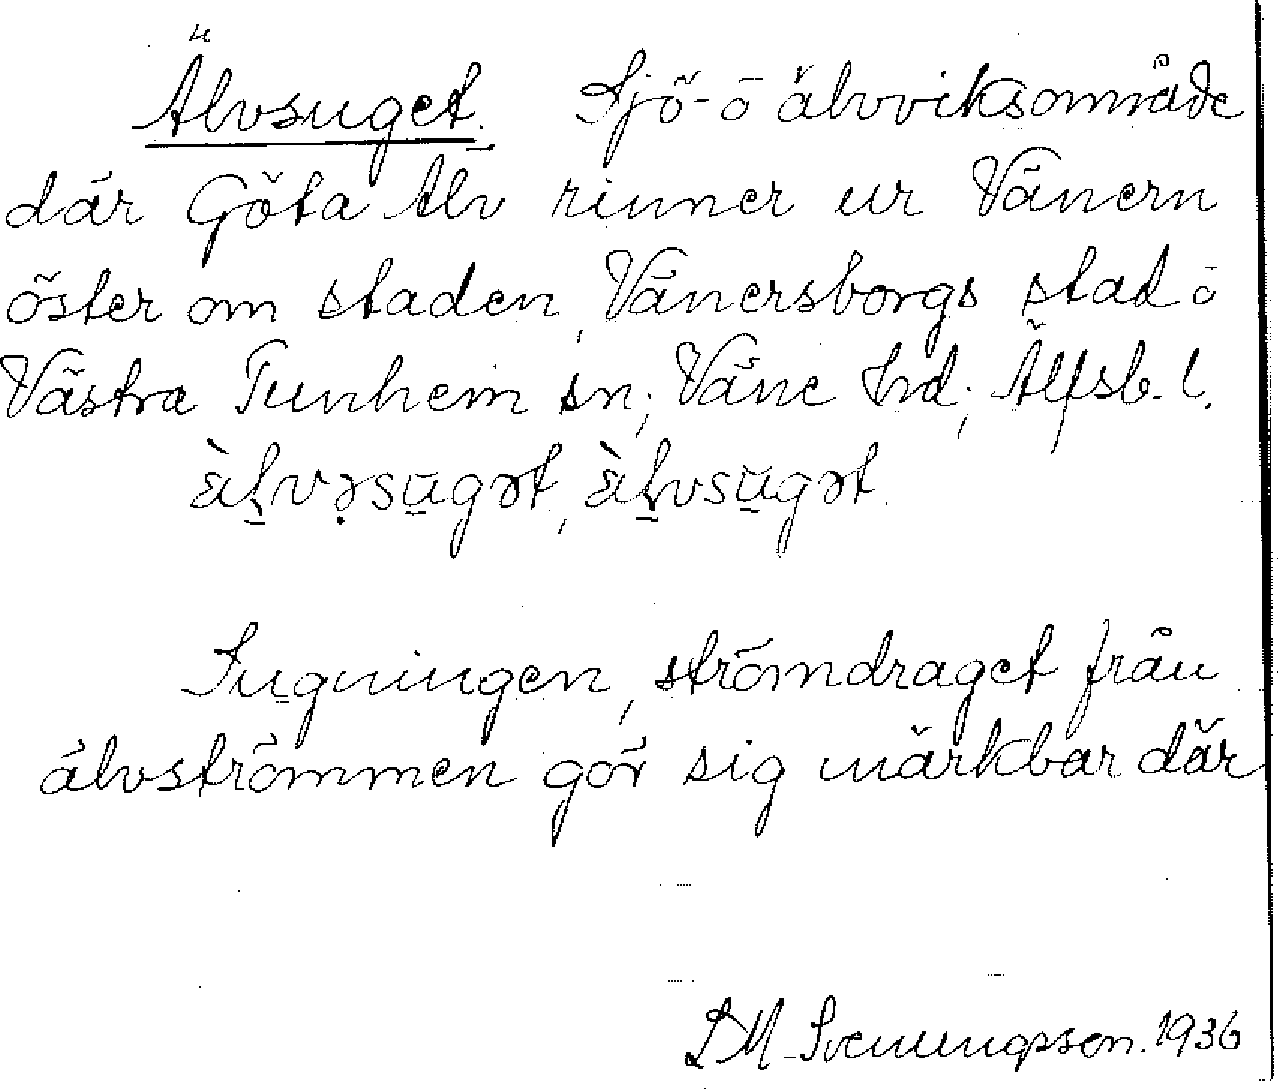 Älvsuget. Sjö- o älvviksområde
där Göta Älv rinner ur Vänern
öster om staden, Vänersborgs stad o
Västra Tunhem sn; Väne hd; Älfsb. l.
ὰl̠və̣sūgət, ὰl̠vsūgət.
Sugningen, strömdraget från
älvströmmen gör sig märkbar där
D M Svenungsson. 1936